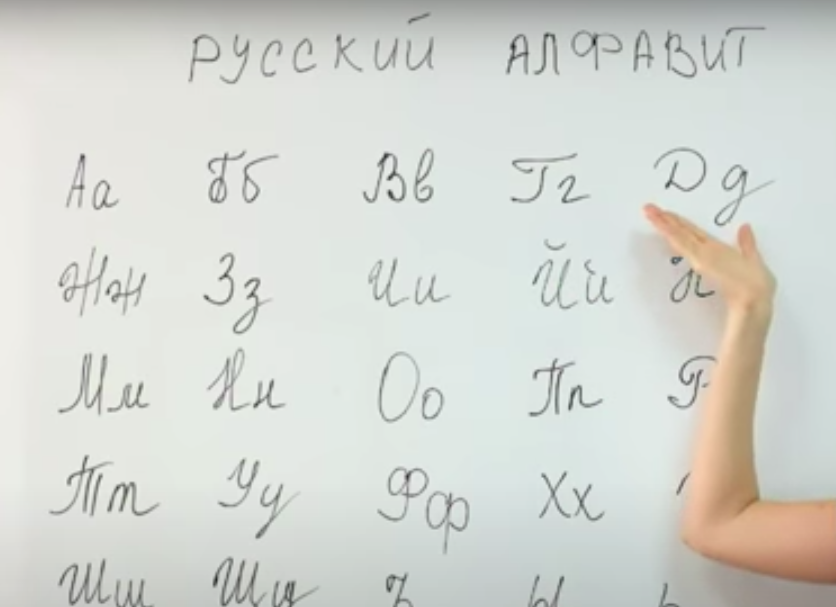 РУССКИЙ АЛФАВИТ
Аа Бб Вв Гг Дд
Жж Зз Ии Йй К
Мм Нн Оо Пп Р
Тт Уу Фф Хх
Шш Щщ ъ ы ь